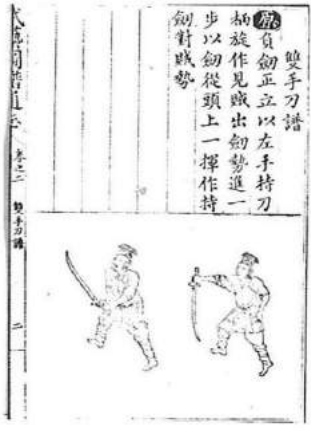 雙手刀譜
原負劍正立以左手持刀
柄旋作見賊出劍勢進一
步以劍從頭上一揮作持
劍對賊勢
武藝圖譜通志 卷之二 雙手刀譜 二